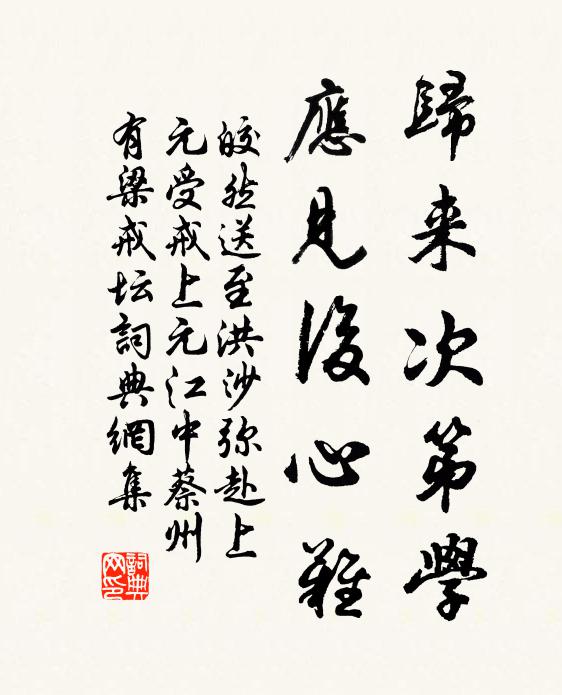 歸来次第學
應見後心難
皎然送至洪沙弥赴上
元受戒上元江中蔡州
有梁戒坛詞典網集
詞典
网印